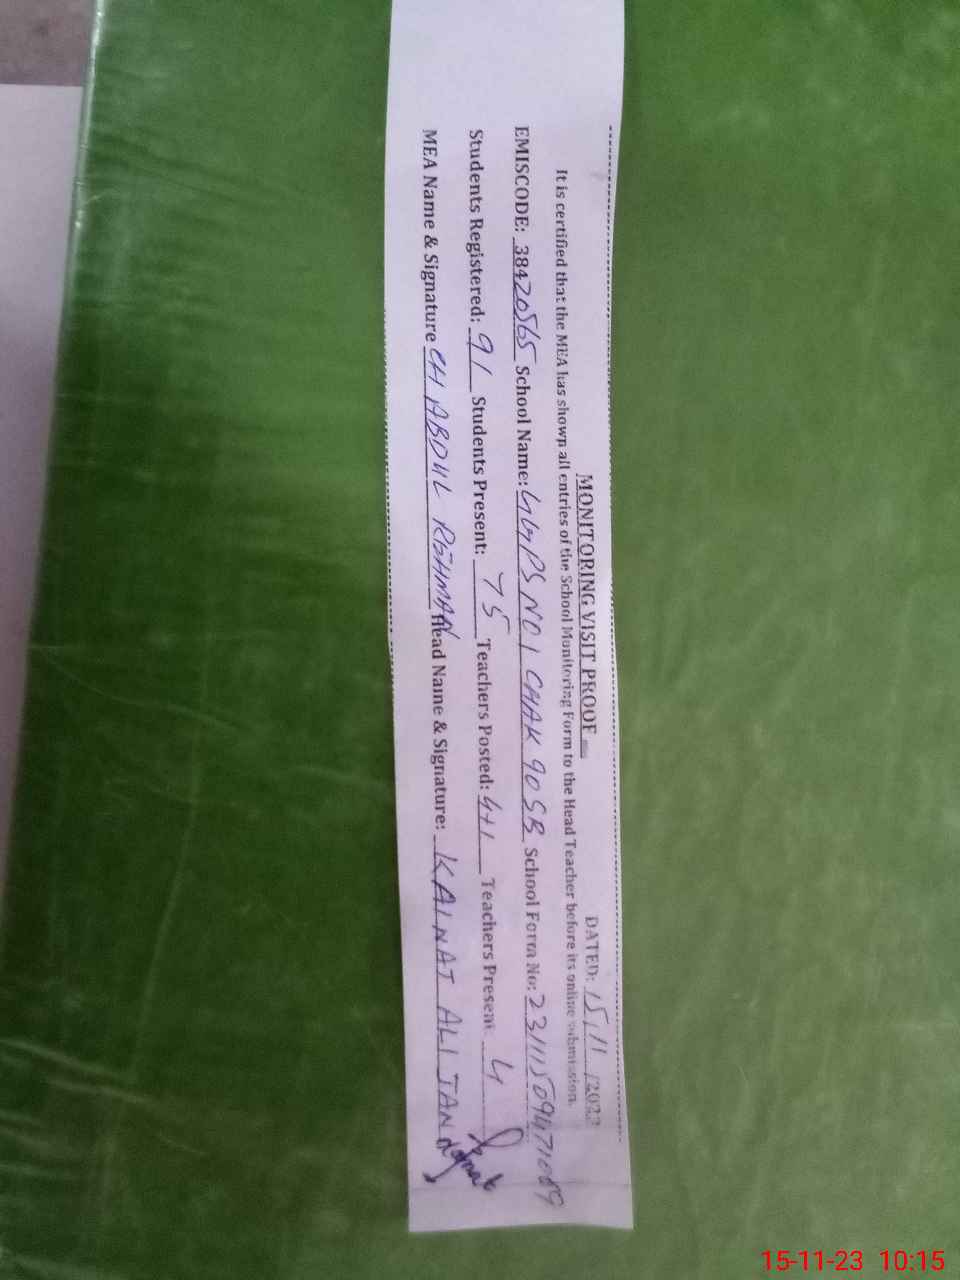 MONITORING VISIT PROOF
DATED: 15/11/2023
It is certified that the MEA has shown all entries of the School Monitoring Form to the Head Teacher before its online submission.
EMISCODE: 38420565 School Name: GGPS NO 1 CHAK 90 SB School Form No:
Students Registered: 91 Students Present: 75 Teachers Posted: 4+1 Teachers Present 4
MEA Name & Signature CH ABDUL REHMAN Head Name & Signature: KAINAT ALI JAN
15-11-23 10:15